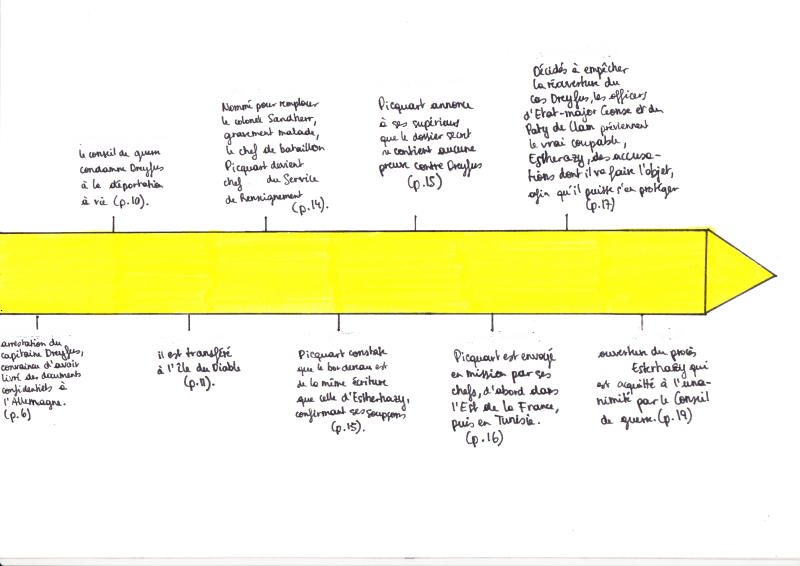 le conseil de guerre
condamne Dreyfus
à la déportation
à vie (p.10).
Nommé pour remplacer
le colonel Sandherr,
gravement malade,
le chef de bataillon
Picquart devient
chef du Service
de Renseignement
(p.14).
Picquart annonce
à ses supérieurs
que le dossier secret
ne contient aucune
preuve contre Dreyfus
(p.15)
Décidés à empêcher
la réouverture du
cas Dreyfus, les officiers
d'Etat-major Gonse et du
Paty de Clam préviennent
le vrai coupable,
Estherazy, des accusa-
tions dont il va faire l'objet,
afin qu'il puisse s'en protéger
(p.17)
arrestation du
capitaine Dreyfus,
convaincu d'avoir
livré des documents
confidentiels à
l'Allemagne.
(p.6)
il est transféré
à l'Île du Diable
(p.11).
Picquart constate
que le bordereau est
de la même écriture
que celle d'Estherhazy,
confirmant ses soupçons
(p.15).
Picquart est envoyé
en mission par ses
chefs, d'abord dans
l'Est de la France,
puis en Tunisie.
(p.16)
ouverture du procès
Esterhazy qui
est acquitté à l'una-
nimité par le Conseil
de guerre. (p.19)